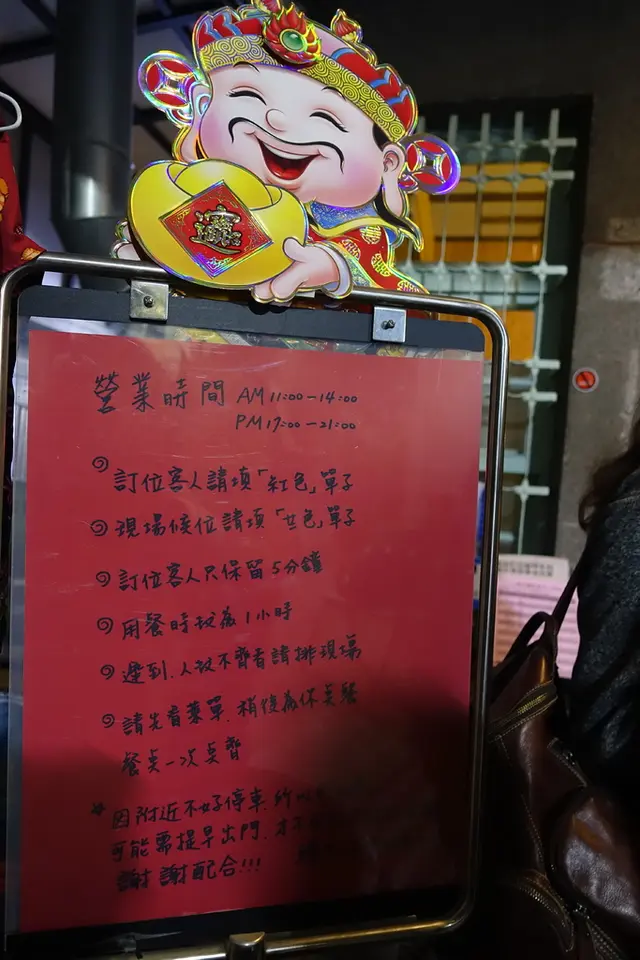 營業時間 AM 11:00－14:00
PM 17:00－21:00
訂位客人請填「紅色」單子
現場候位請填「 色」單子
訂位客人只保留5分鐘
用餐時 為1小時
遲到.人 不齊者請排現場
請先看菜單.稍後為你 餐
餐點一次 齊
★因附近不好停車
可能需提早出門.才
謝謝配合!!!